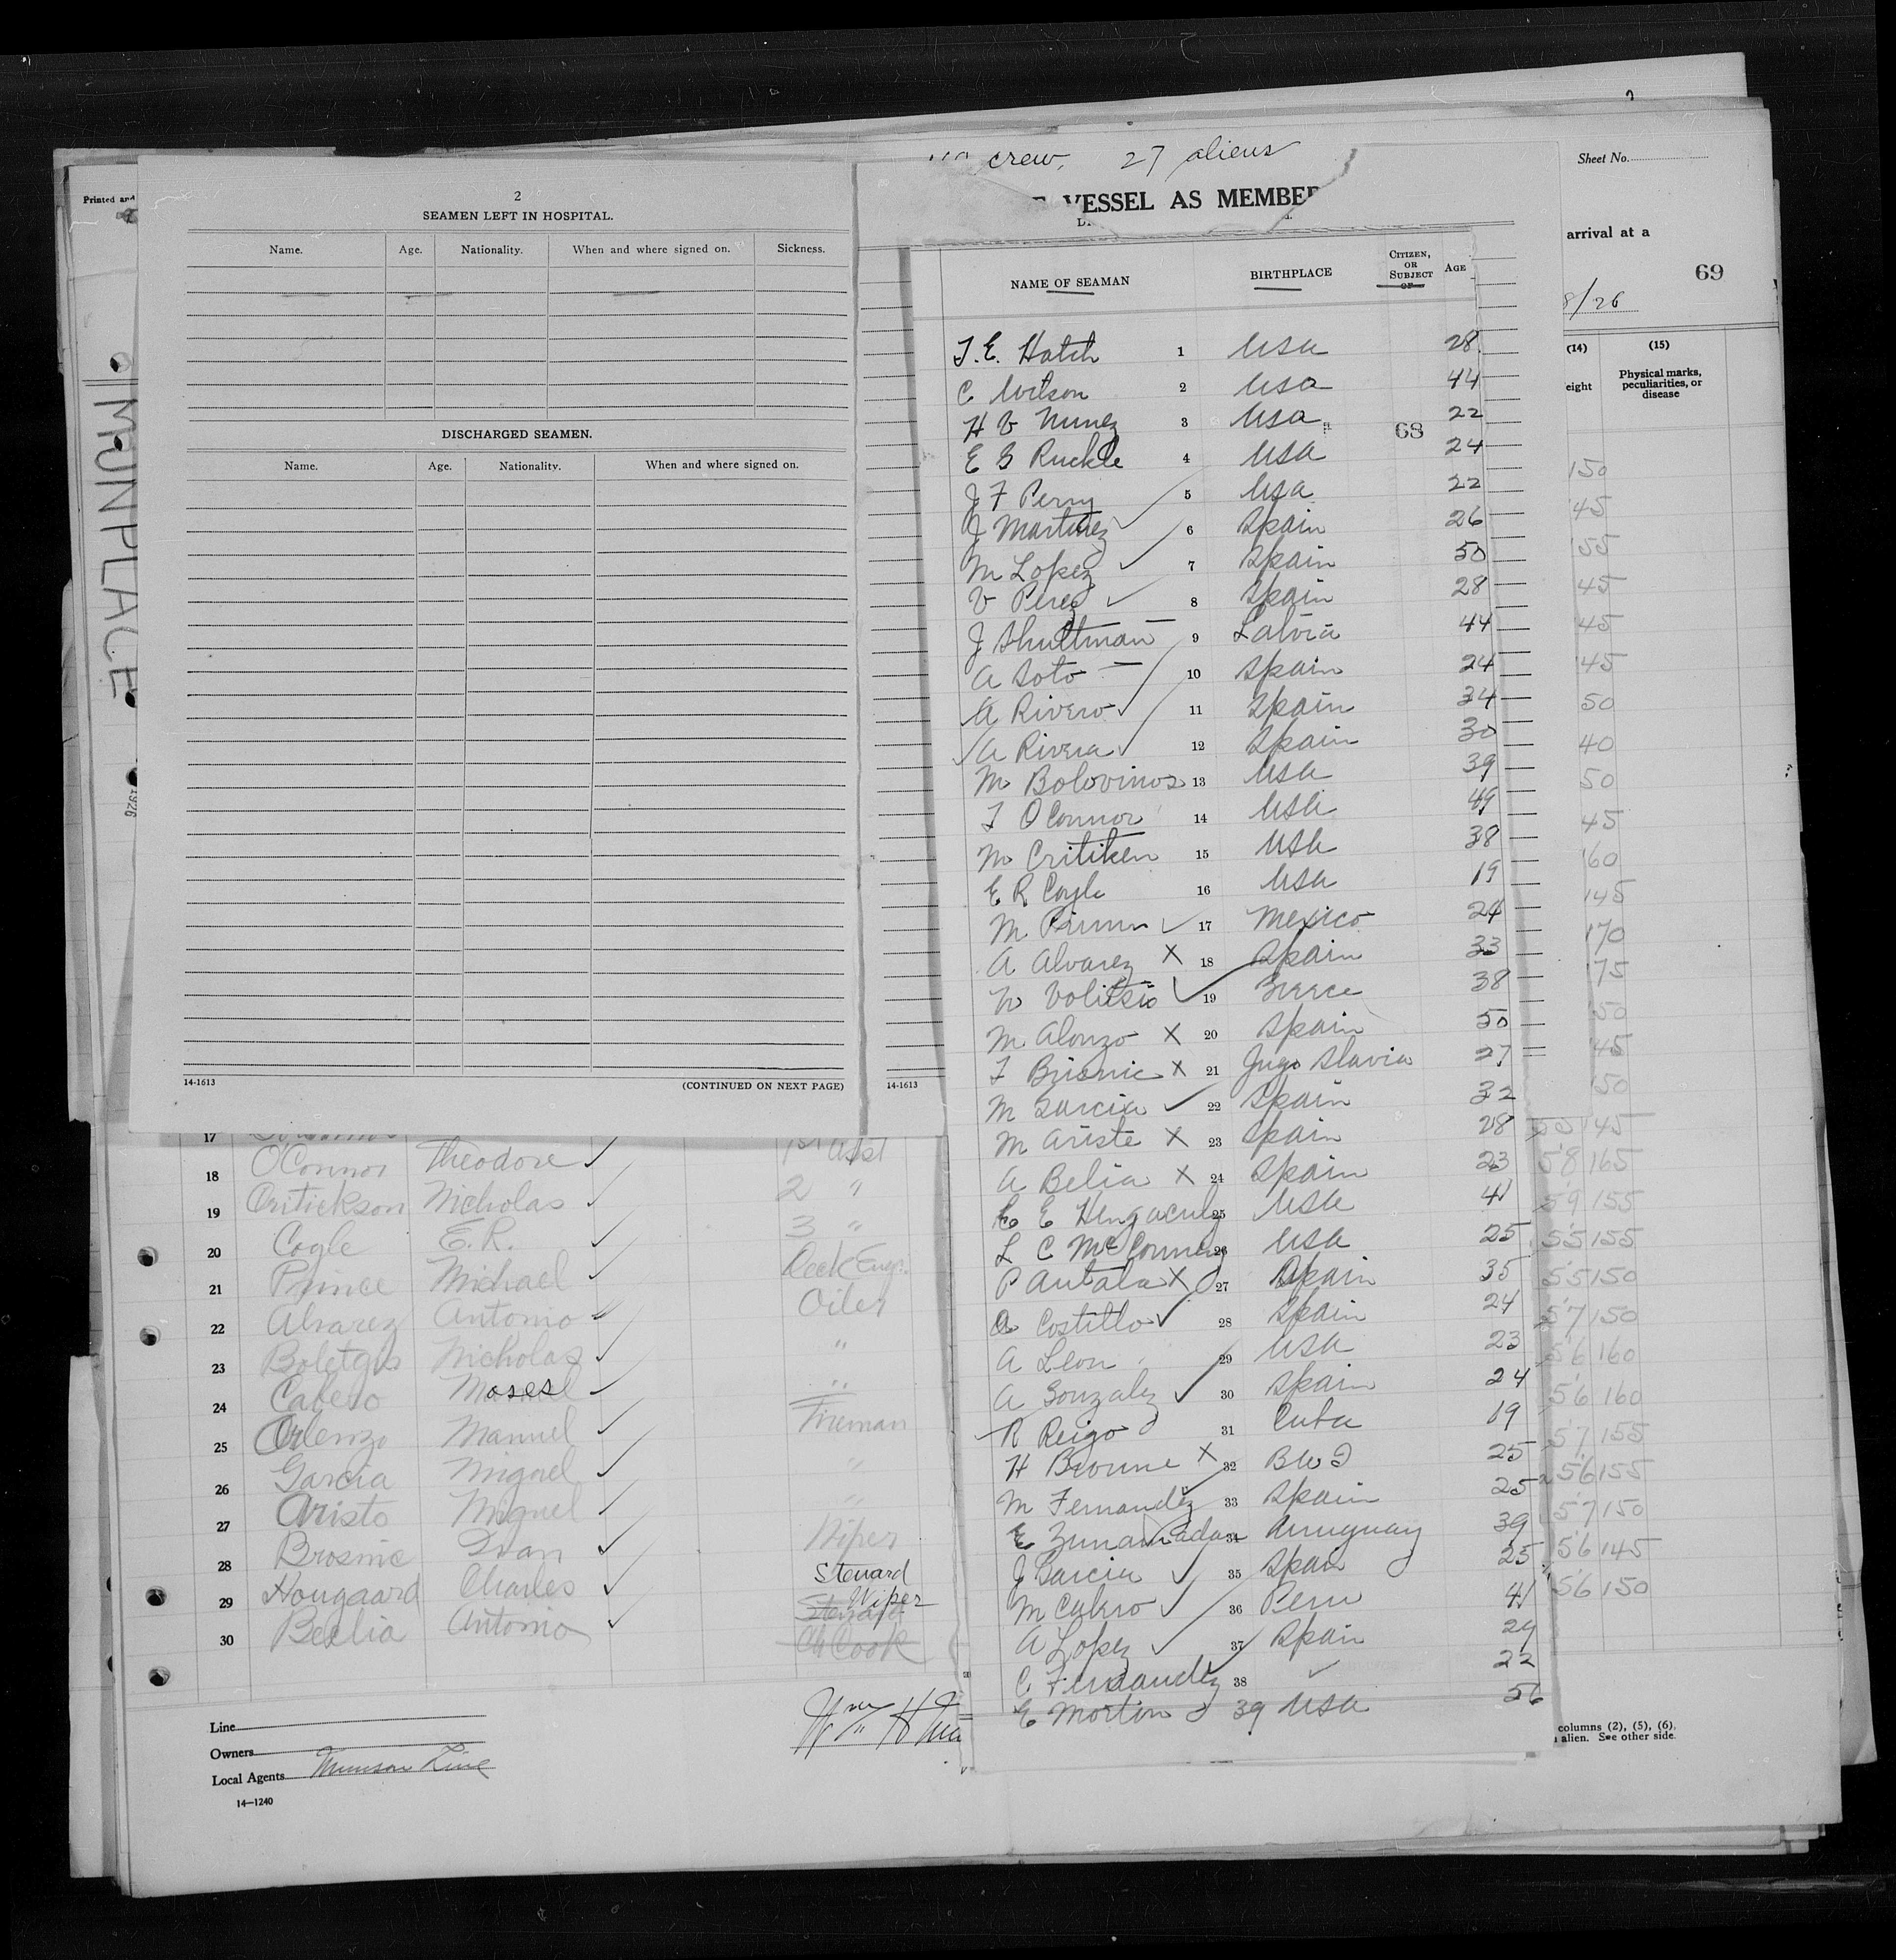 Printed and
MRINPLACE
1926
2
SEAMEN LEFT IN HOSPITAL.
Name. Age. Nationality. When and where signed on. Sickness.
DISCHARGED SEAMEN.
Name. Age. Nationality. When and where signed on.
14-1613 (CONTINUED ON NEXT PAGE)
14-1613
crew, 27 aliens
VESSEL AS MEMBER
NAME OF SEAMAN BIRTHPLACE CITIZEN, OR SUBJECT OF AGE
68
T. E. Hatch 1 USA 28
C Wilson 2 USA 44
H V Nunez 3 USA 22
E G Ruckle 4 USA 24
J F Perry 5 USA 22
J Martinez 6 Spain 26
M Lopez 7 Spain 50
V Perez 8 Spain 28
J Shultman 9 Latvia 44
A Soto 10 Spain 24
A Rivero 11 Spain 34
A Rivera 12 Spain 30
M Bolovinos 13 USA 39
T OConnor 14 USA 49
M Critiken 15 USA 38
E R Cogle 16 USA 19
M 17 Mexico 24
A Alvarez X 18 Spain 33
N 19 Greece 38
M Alonzo X 20 Spain 50
I Brisnic X 21 Jugo Slavia 27
M Garcia 22 Spain 32
M Ariste X 23 Spain 28
A Belia X 24 Spain 23
E 25 USA 41
L C McConney 26 USA 25
P Antala X 27 Spain 35
A Costillo 28 Spain 24
A Leon 29 USA 23
A Gonzalez 30 Spain 24
R Reigo 31 Cuba 19
H Browne X 32 B W I 25
M Fernandez 33 Spain 25
E 34 Uruguay 39
J Garcia 35 Spain 25
M Cabero 36 Peru 41
A Lopez 37 Spain 29
C Fernandez 38 22
E Morton 39 USA 56
Sheet No.
arrival at a
69
8/26
(14) (15)
eight Physical marks, peculiarities, or disease
150
45
55
45
45
145
50
40
50
45
160
145
170
175
50
45
150
17 1st Asst
18 O'Connor Theodore 2 "
19 Critickson Nicholas 3 "
20 Cogle E.R. Deck Eng.
21 Prince Michael Oiler
22 Alvarez Antonio "
23 Boletgis Nicholas "
24 Cabero Moses Fireman
25 Orlenzo Manuel "
26 Garcia Miguel "
27 Aristo Miguel Wiper
28 Brosnic Ivan Steward
29 Hougaard Charles Steward Wiper
30 Beelia Antonio Ch Cook
55 145
5'8 165
5'9 155
5'5 155
5'5 150
5'7 150
5'6 160
5'6 160
5'7 155
5'6 155
5'7 150
5'6 145
5'6 150
Line
Owners
Local Agents Munson Line
14—1240
columns (2), (5), (6),
alien. See other side.